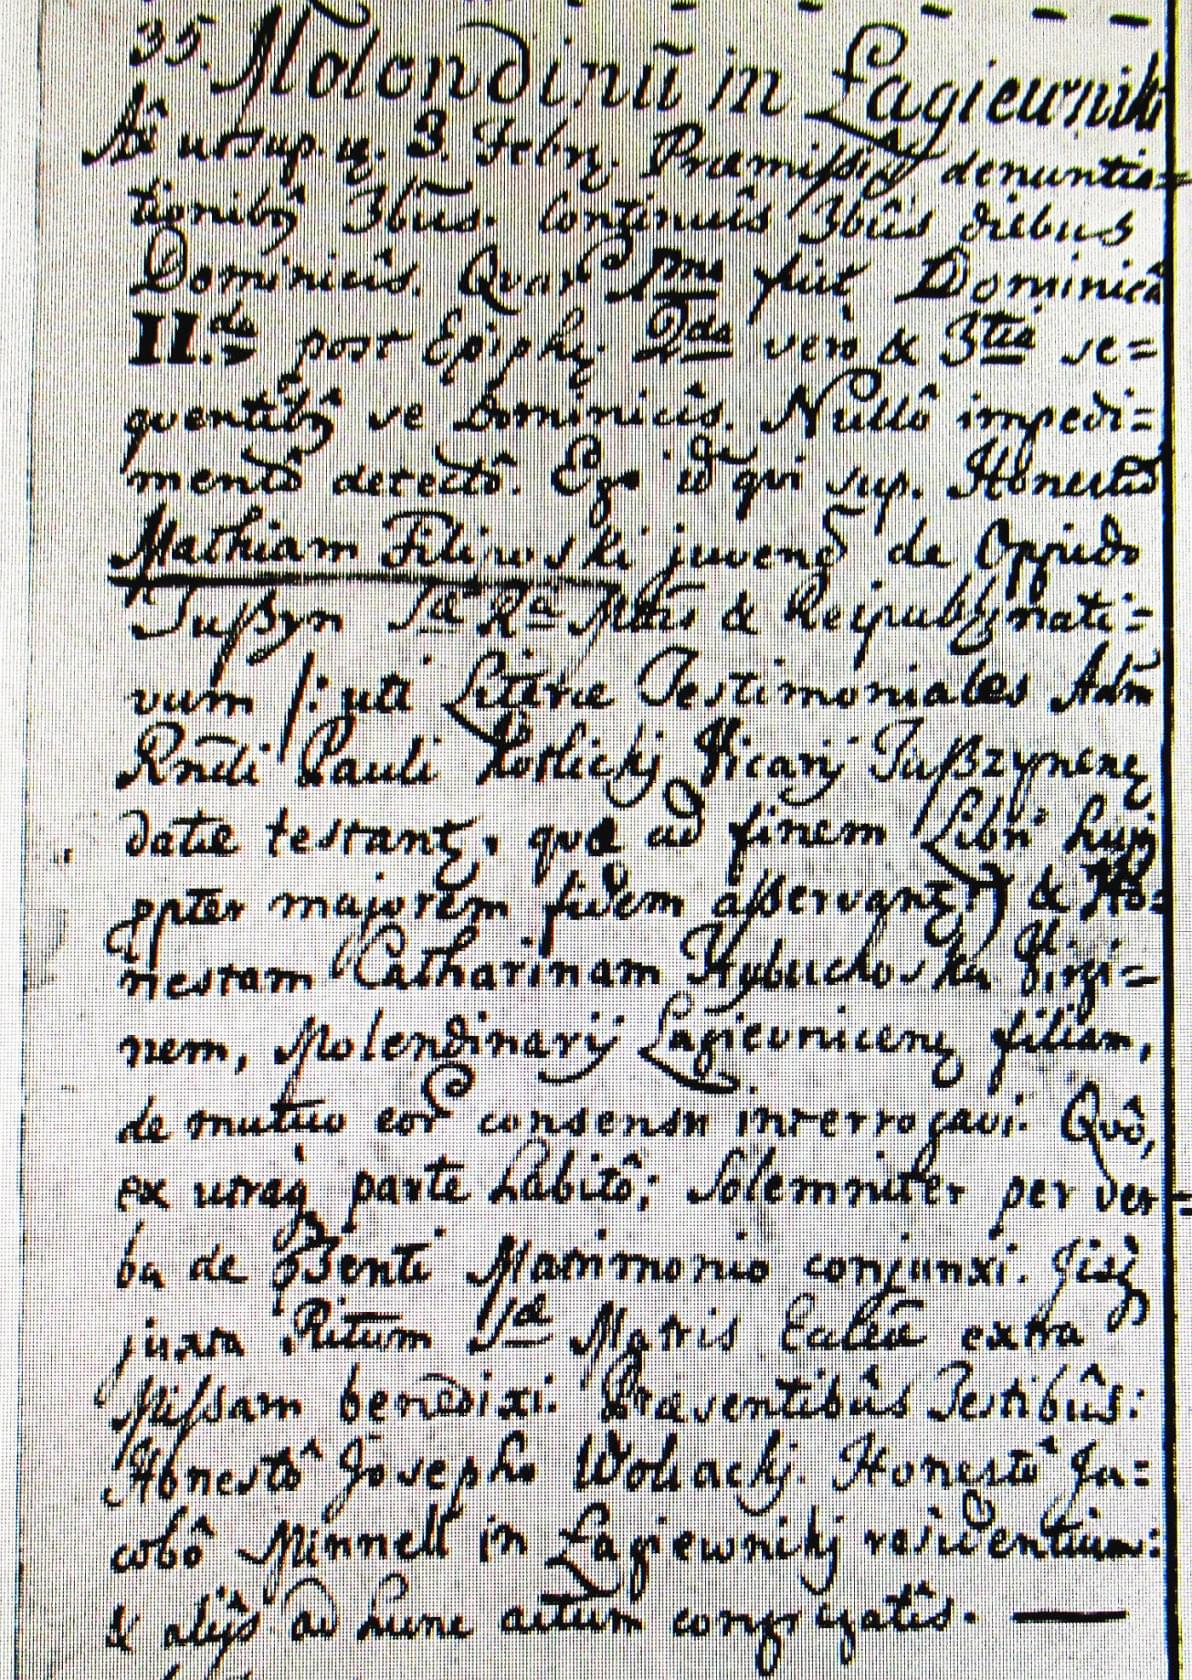 35. Molendinū in Łagiewniki
Aō ut sup. 3. Febr. Præmissis denuntia=
tionibȝ 3bus. Continuis 3bûs diebus
Dominicis. Quar 1ma fuit Dominicâ
II.da post Epiph. 2da vero & 3tia se=
quentibȝ se Dominicis. Nullô impedi=
mentô detectô. Ego id qui sup. Honestū
Mathiam Filipowski juvenē de Oppido
Tußyn Sæ Ræ Mtis & Reipubȝ nati=
vum /: uti Literæ Testimoniales Adm
Rndi Pauli Vicarij Tußzynenȝ
datæ testantȝ. quæ ad finem Libri huj9
ppter majorem fidem aßservantȝ) & Ho=
nestam Catharinam Rybuchoska Virgi=
nem, Molendinarij Łagievnicenȝ filiam,
de mutuo eor consensu interrogavi. Quô,
ex utraq parte habitô; Solemniter per ver=
ba de psenti Matrimonio conjunxi. Iisq
juxta Ritum Sæ Matris Eccleæ extra
Missam benedixi. Præsentibûs Testibûs:
Honestô Josepho Wolackj. Honestô Ja=
cobô Minnell in Łagiewnikj residentium:
& alijs ad hunc actum congregatis. —